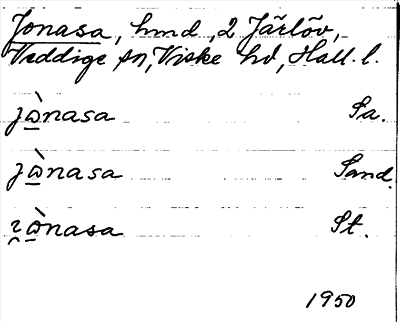 Jonasa, hmd, 2 Järlöv,
Veddige sn, Viske hd, Hall. l.
jὼnasa Sa.
jὼnasa Sand.
ɀὼnasa St.
1950